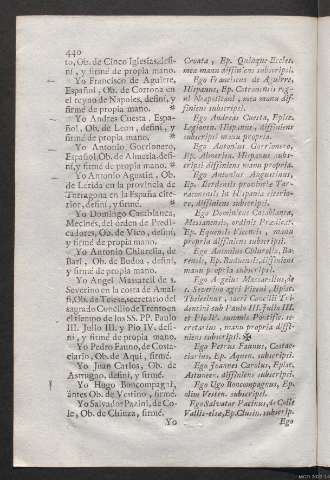 440
to, Ob. de Cinco Iglesias, defi-
ní, y firmé de propia mano.
Yo Francisco de Aguirre,
Español, Ob. de Cortona en
el reyno de Napoles, definí, y
firmé de propia mano. *
Yo Andres Cuesta, Espa-
ñol, Ob. de Leon, definí, y
firmé de propia mano. *
Yo Antonio Gorrionero,
Español, Ob. de Almería, definí,
y firmé de propia mano. *
Yo Antonio Agustin, Ob.
de Lerida en la provincia de
Tarragona en la España cite-
rior, definí, y firmé. *
Yo Domingo Casablanca,
Mecinés, del órden de Predi-
cadores, Ob. de Vico, definí,
y firmé de propia mano.
Yo Antonio Chiurelia, de
Bari, Ob. de Budoa, definí,
y firmé de propia mano.
Yo Angel Massarell de S.
Severino en la costa de Amal-
fi, Ob. de Telese, secretario del
sagrado Concilio de Trento en
el tiempo de los SS. PP. Paulo
III. Julio III. y Pio IV. definí,
y firmé de propia mano.
Yo Pedro Fauno, de Costa-
ciario, Ob. de Aqui, firmé.
Yo Juan Carlos, Ob. de
Astrugno, definí, y firmé.
Yo Hugo Boncompagni,
ántes Ob. de Vestino, firmé.
Yo Salvador Pazini, de Co-
le, Ob. de Chiuza, firmé.
Yo
Croata, Ep. Quinque Eccles.
mea manu diffiniens subscripsi.
Ego Franciscus de Aguirre,
Hispanus, Ep. Cotronensis reg-
ni Neapolitani, mea manu dif-
finiens subscripsi.
Ego Andreas Cuesta, Episc.
Legionen. Hispanus, diffiniens
subscripsi manu propria.
Ego Antonius Gorrionero,
Ep. Almerien. Hispanus subs-
cripsi diffiniens manu propria.
Ego Antonius Augustinus,
Ep. Ilerdensis provinciæ Tar-
raconensis in Hispania citerio-
re, diffiniens subscripsi.
Ego Dominicus Casablanca,
Messanensis, ordinis Prædicat.
Ep. Equensis Vicensis, manu
propria diffiniens subscripsi.
Ego Antonius Chiurelia, Ba-
rensis, Ep. Buduensis, diffiniens
manu propria subscripsi.
Ego Angelus Massarellus, de
S. Severino agri Piceni, Episc.
Thelesinus, sacri Concilii Tri-
dentini sub Paulo III. Julio III.
et Pio IV. summis Pontific. se-
cretarius, manu propria diffi-
niens subscripsi.
Ego Petrus Faunus, Costac-
ciarius, Ep. Aquen. subscripsi.
Ego Joannes Carolus, Episc.
Astunen. diffiniens subscripsi.
Ego Ugo Boncompagnus, Ep.
olim Vesten. subscripsi.
Ego Salvator Pacinus, de Colle
Vallis-elsæ, Ep. Clusin. subscrip.
Ego